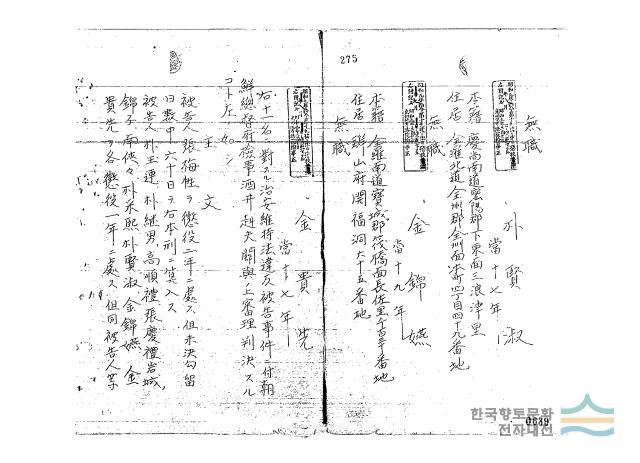 275
無職
朴賢淑
當十七年
本籍 慶尚南道密陽郡下東面三浪津里
住居 全羅北道全州郡全州面本町四丁目四十九番地
無職
金錦嬿
當十九年
本籍 全羅南道寶城郡筏橋面長佐里
住居 群山府開福洞六十五番地
無職
金貴先
當十七年
右十一名ニ對スル治安維持法違反被告事件ニ付朝
鮮總督府檢事酒井赳夫關與ノ上審理判決スル
コト左ノ如シ
主文
被告人張梅性ヲ懲役二年ニ處ス但未決勾留
日數中六十日ヲ右本刑ニ算入ス
被告人朴玉連朴継男高順禮張慶禮岩城
錦子南俠々朴釆熙朴賢淑金錦嬿金
貴先ヲ各懲役一年ニ處ス但同被告人等
한국향토문화
전자대전